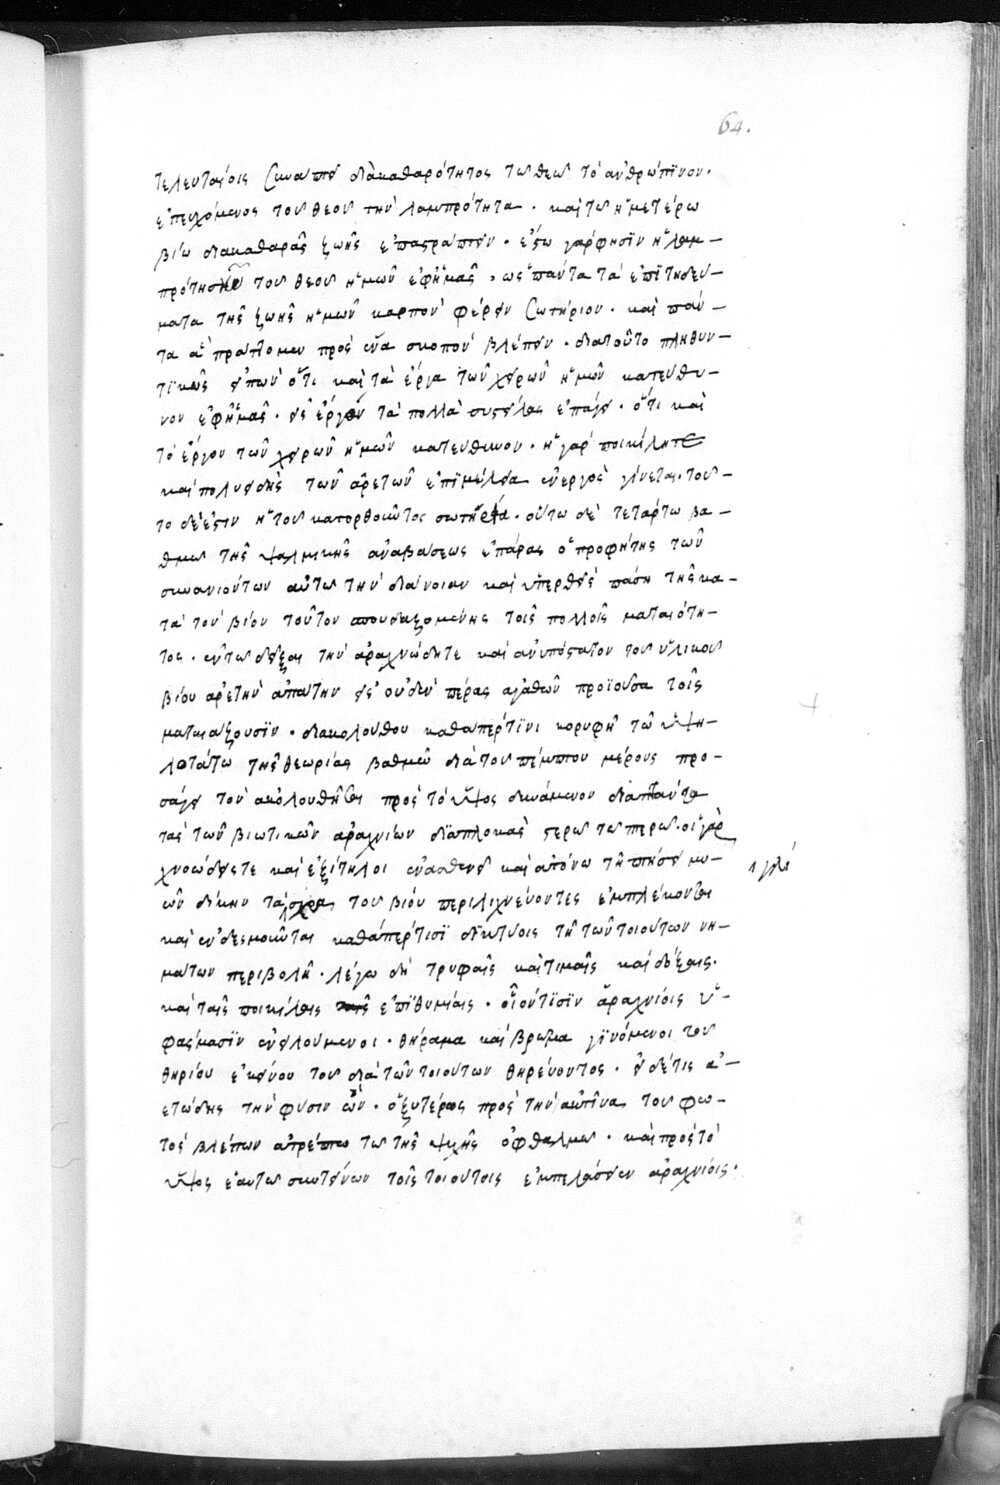 64.
τελευταίοις συνάπτει διὰ καθαρότητος τῶ θεῶ τὸ ἀνθρώπϊνον.
ἐπευχόμενος τοῦ θεοῦ τὴν λαμπρότητα. καὶ τῶ ἡμετέρω
βίω διὰ καθαρᾶς ζωῆς ἐπαστράπτειν. ἔστω γάρ φησϊν ἡ λαμ-
πρότης τοῦ θεοῦ ἡμῶν ἐφ' ἡμᾶς, ὡς πάντα τὰ ἐπϊτηδεύ-
ματα τῆς ζωῆς ἡμῶν καρπὸν φέρειν σωτήριον. καὶ πάν-
τα ἃ πράττομεν πρὸς ἕνα σκοπὸν βλέπειν. διὰ τοῦτο πληθυν-
τικῶς εἰπὼν ὅτι καὶ τὰ ἔργα τῶν χειρῶν ἡμῶν κατεύθυ-
νον ἐφ' ἡμᾶς. εἰς ἔργον τὰ πολλὰ συστείλας ἐπάγει. ὅτι καὶ
τὸ ἔργον τῶν χειρῶν ἡμῶν κατεύθυνον. ἡ γὰρ ποικίλη τε
καὶ πολυειδὴς τῶν ἀρετῶν ἐπϊμέλεια ἓν ἔργον γίνεται. τοῦ-
το δέ ἐστιν ἡ τοῦ κατορθοῦντος σωτηρία. οὕτω δὲ τετάρτω βα-
θμῶ τῆς ψαλμικῆς ἀναβάσεως ἐπάρας ὁ προφήτης τῶν
συνανιόντων αὐτῶ τὴν διάνοιαν καὶ ὑπερθεὶς πάση τῆς κα-
τὰ τὸν βίον τοῦτον σπουδαζομένης τοῖς πολλοῖς ματαιότη-
τος. ἐν τῶ δεῖξαι τὴν ἀραχνώδη τε καὶ ἀνυπόστατον τοῦ ὑλικοῦ
βίου ἀπάτην εἰς οὐδὲν πέρας ἀγαθῶν προϊοῦσα τοῖς
ματαιάζουσϊν. διακολούθου καθάπερ τϊνὶ κορυφῆ τῶ ὑψη-
λοτάτω τῆς θεωρίας βαθμῶ διὰ τοῦ πέμπτου μέρους προ-
σάγει τὸν ἀκολουθῆσαι πρὸς τὸ ὕψος δυνάμενον
τὰς τῶν βιωτικῶν ἀραχνίων διαπλοκὰς οἱ γὰρ
χνοώδεις τε καὶ ἐξίτηλοι ἐν ἀσθενεῖ καὶ ἀτόνω τῆ πτήσει μυ-
ῶν δίκην τοῦ βίου περιλιχνεύοντες ἐμπλέκονται
καὶ ἐνδεσμοῦνται καθάπερ τισὶ δικτύοις τῆ τῶν τοιούτων νη-
μάτων περιβολῆ. λέγω δὴ τρυφαῖς καὶ τιμαῖς καὶ δόξαις.
καὶ ταῖς ποικίλαις ἐπϊθυμίαις. οἷόν τισϊν ἀραχνίοις ὑ-
φάσμασϊν ἐνειλούμενοι. θήραμα καὶ βρῶμα γϊνόμενοι τοῦ
θηρίου ἐκείνου τοῦ διὰ τῶν τοιούτων θηρεύοντος. εἰ δέ τις ἀ-
ετώδης τὴν φύσιν ὢν. ὀξυτέρως πρὸς τὴν ἀκτῖνα τοῦ φω-
τὸς βλέπων ἀτρέπτω τῶ τῆς ψυχῆς ὀφθαλμῶ. καὶ πρὸς τὸ
ὕψος ἑαυτὸν συντείνων τοῖς τοιούτοις ἐμπελάσειεν ἀραχνίοις.